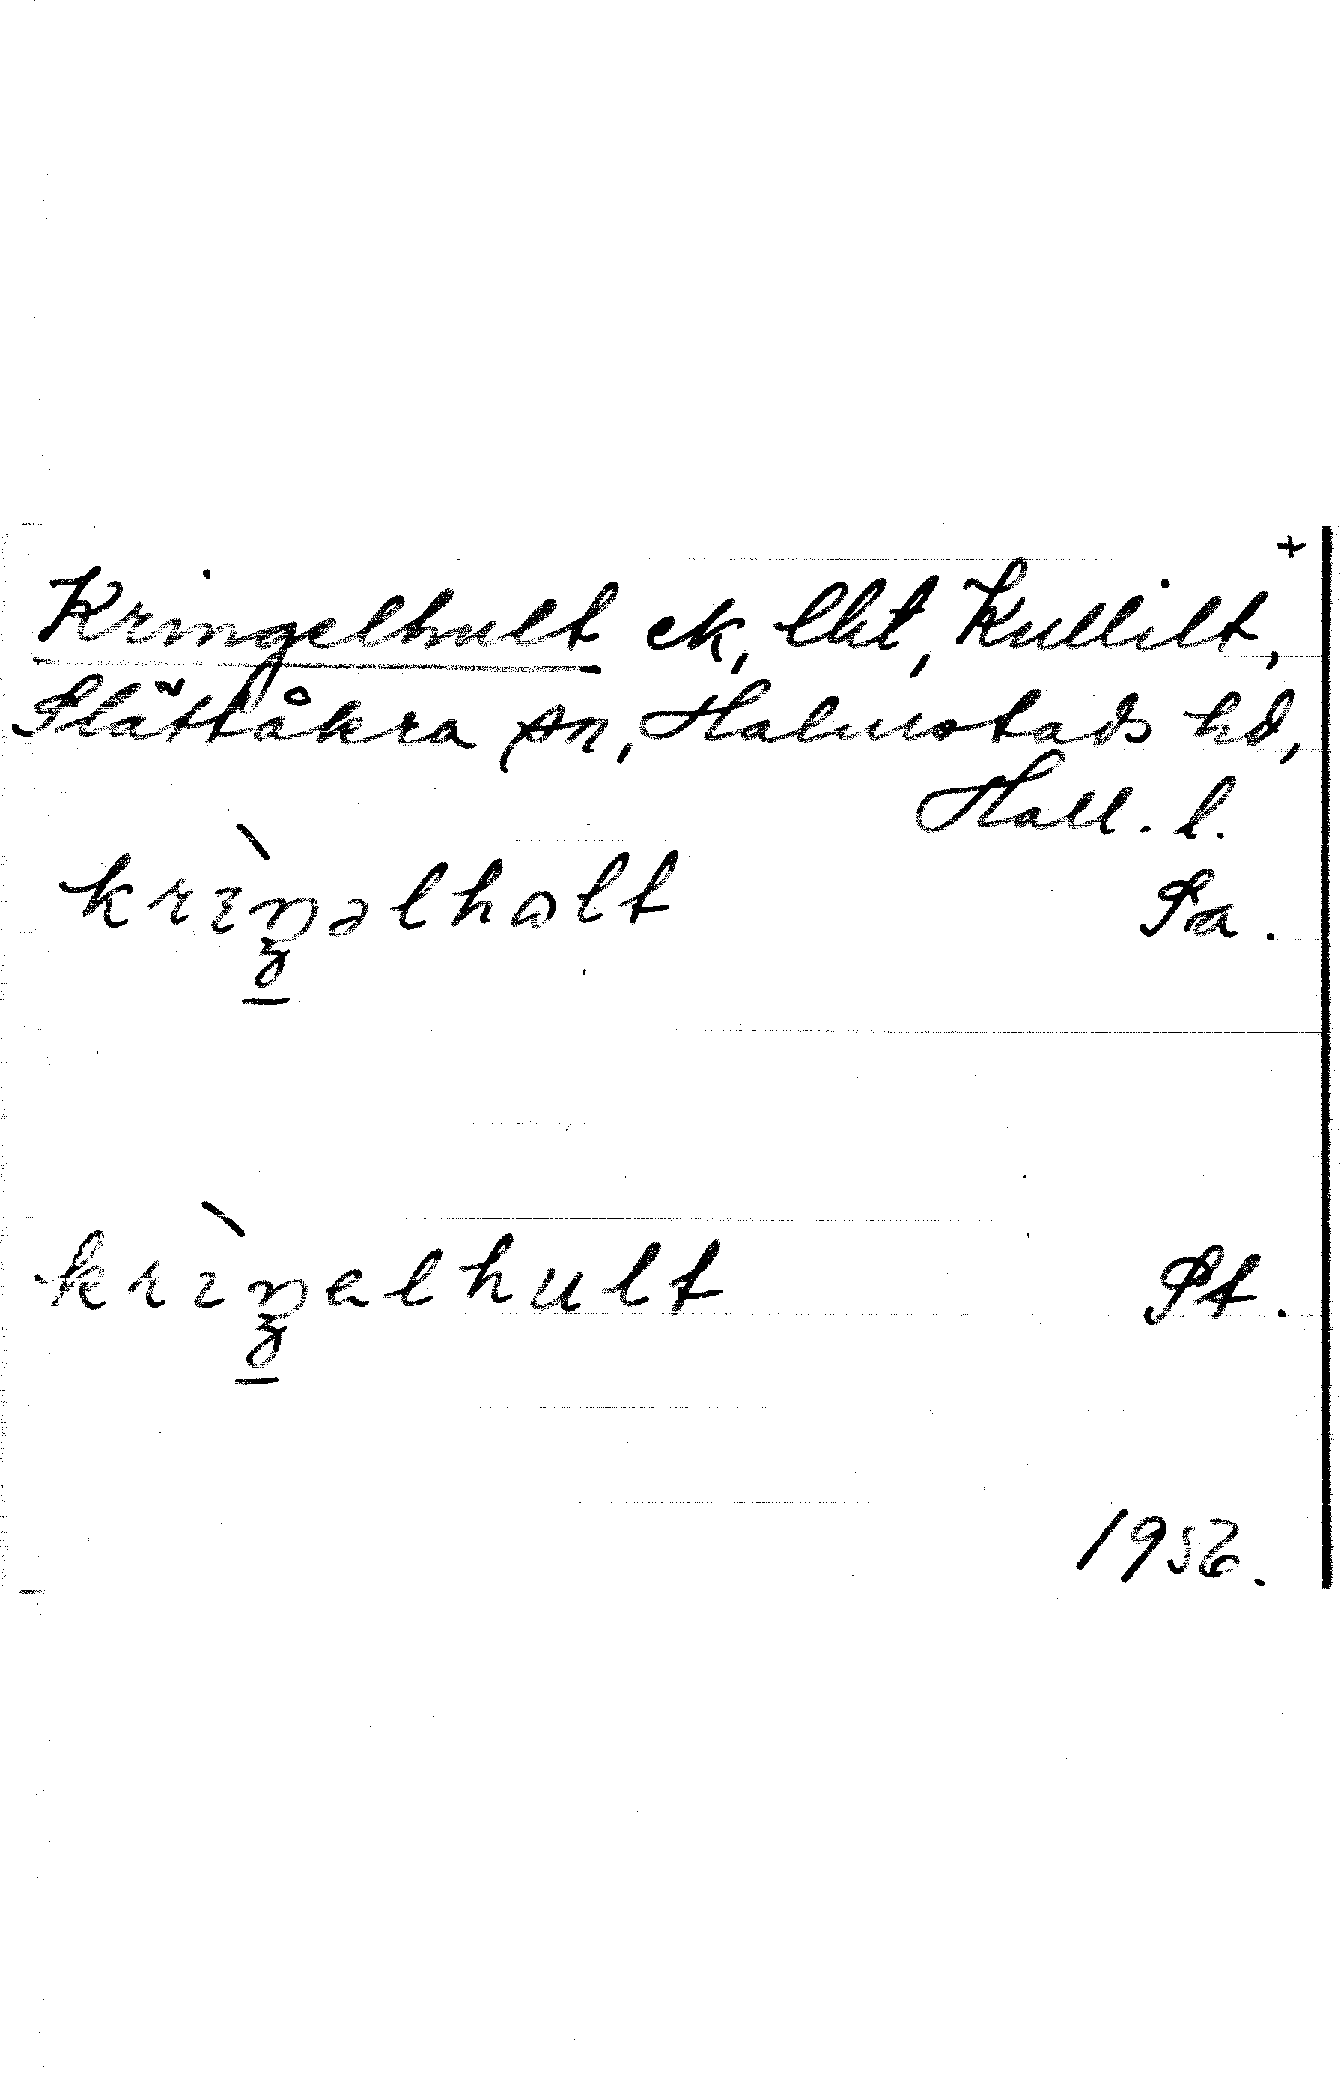 +
Kringelhult ek, lht, Kullilt,
Slättåkra sn, Halmstads hd,
Hall. l.
krìŋəlhalt Sa.
krìŋelhult St.
1956.